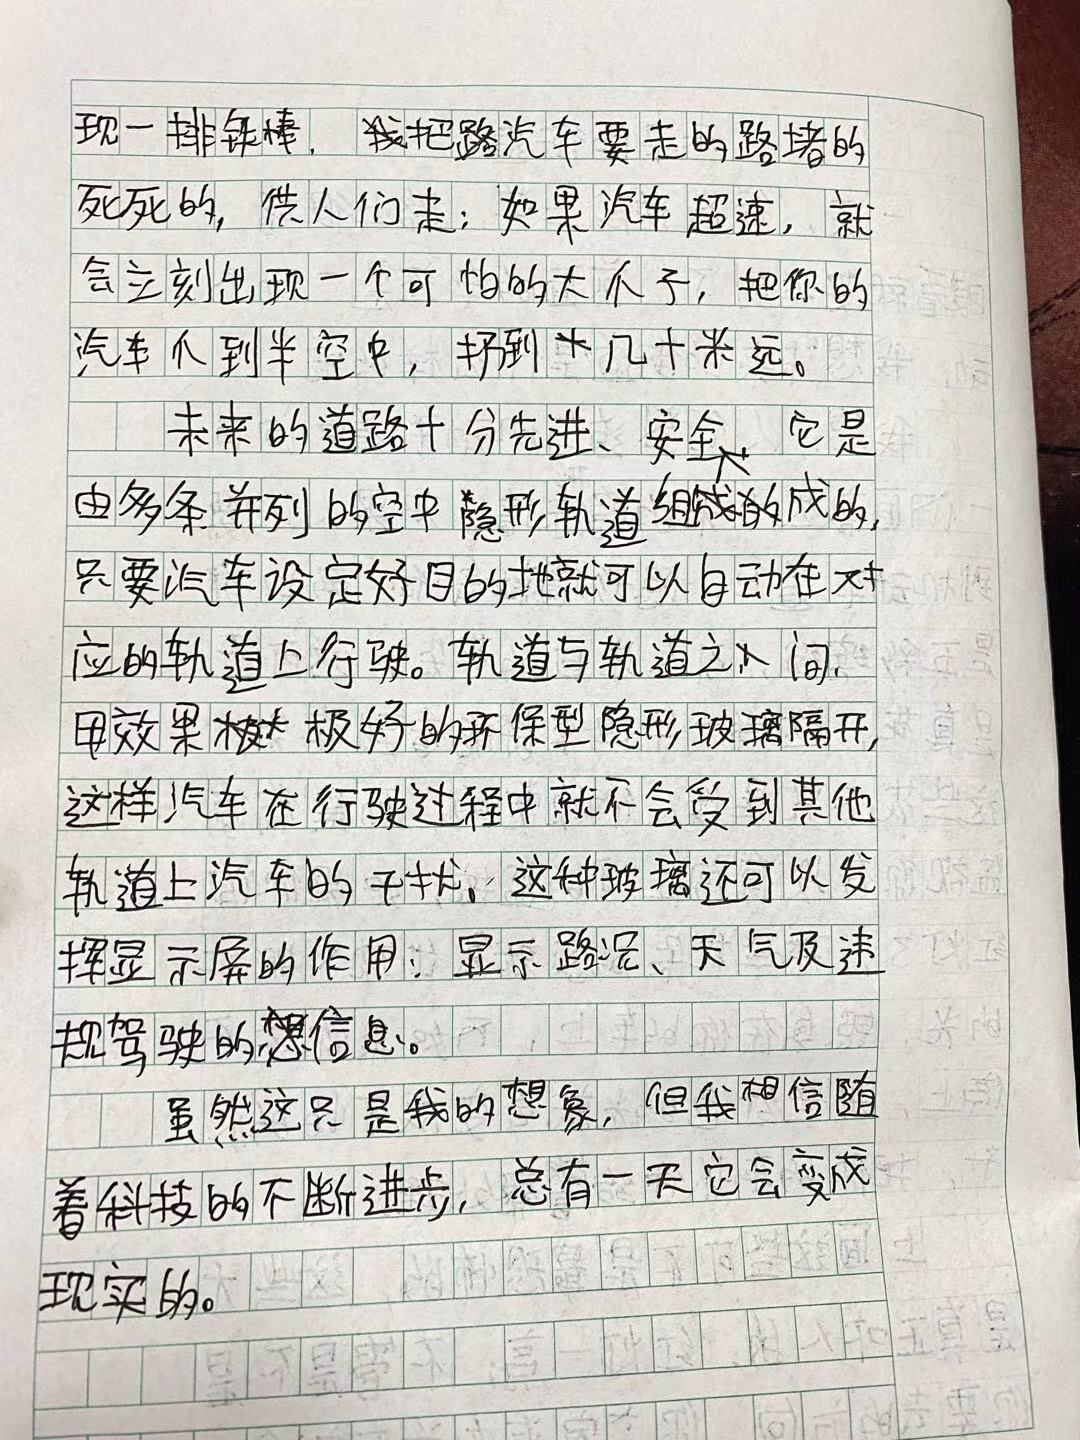 现一排铁棒，我把路汽车要走的路堵的
死死的，供人们走；如果汽车超速，就
会立刻出现一个可怕的大爪子，把你的
汽车爪到半空中，扔到十几十米远。
未来的道路十分先进、安全、它是
由多条并列的空中隐形轨道组成的成的，
只要汽车设定好目的地就可以自动在对
应的轨道上行驶。轨道与轨道之间，
用效果极好的环保型隐形玻璃隔开，
这样汽车在行驶过程中就不会受到其他
轨道上汽车的干扰，这种玻璃还可以发
挥显示屏的作用：显示路况、天气及速
规驾驶的信息。
虽然这只是我的想象，但我相信随
着科技的不断进步，总有一天它会变成
现实的。